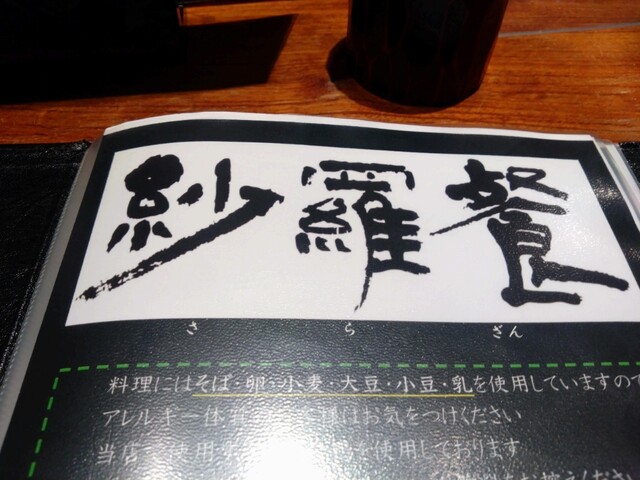 紗羅餐
さ ら ざん
料理にはそば・卵・小麦・大豆・小豆・乳を使用していますので
アレルギー体 様はお気をつけください
当店 使用 を使用しております